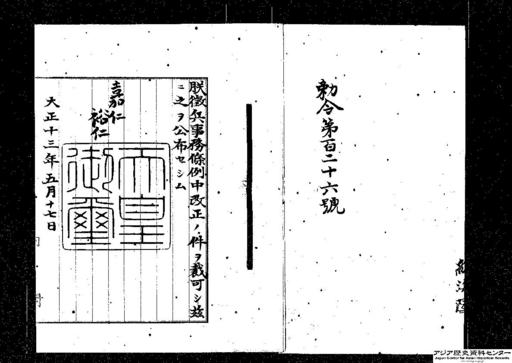 勅令第百二十六號
朕徴兵事務條例中改正ノ件ヲ裁可シ茲
ニ之ヲ公布セシム
嘉仁
裕仁
天皇御璽
大正十三年五月十七日
アジア歴史資料センター
Japan Center for Asian Historical Records